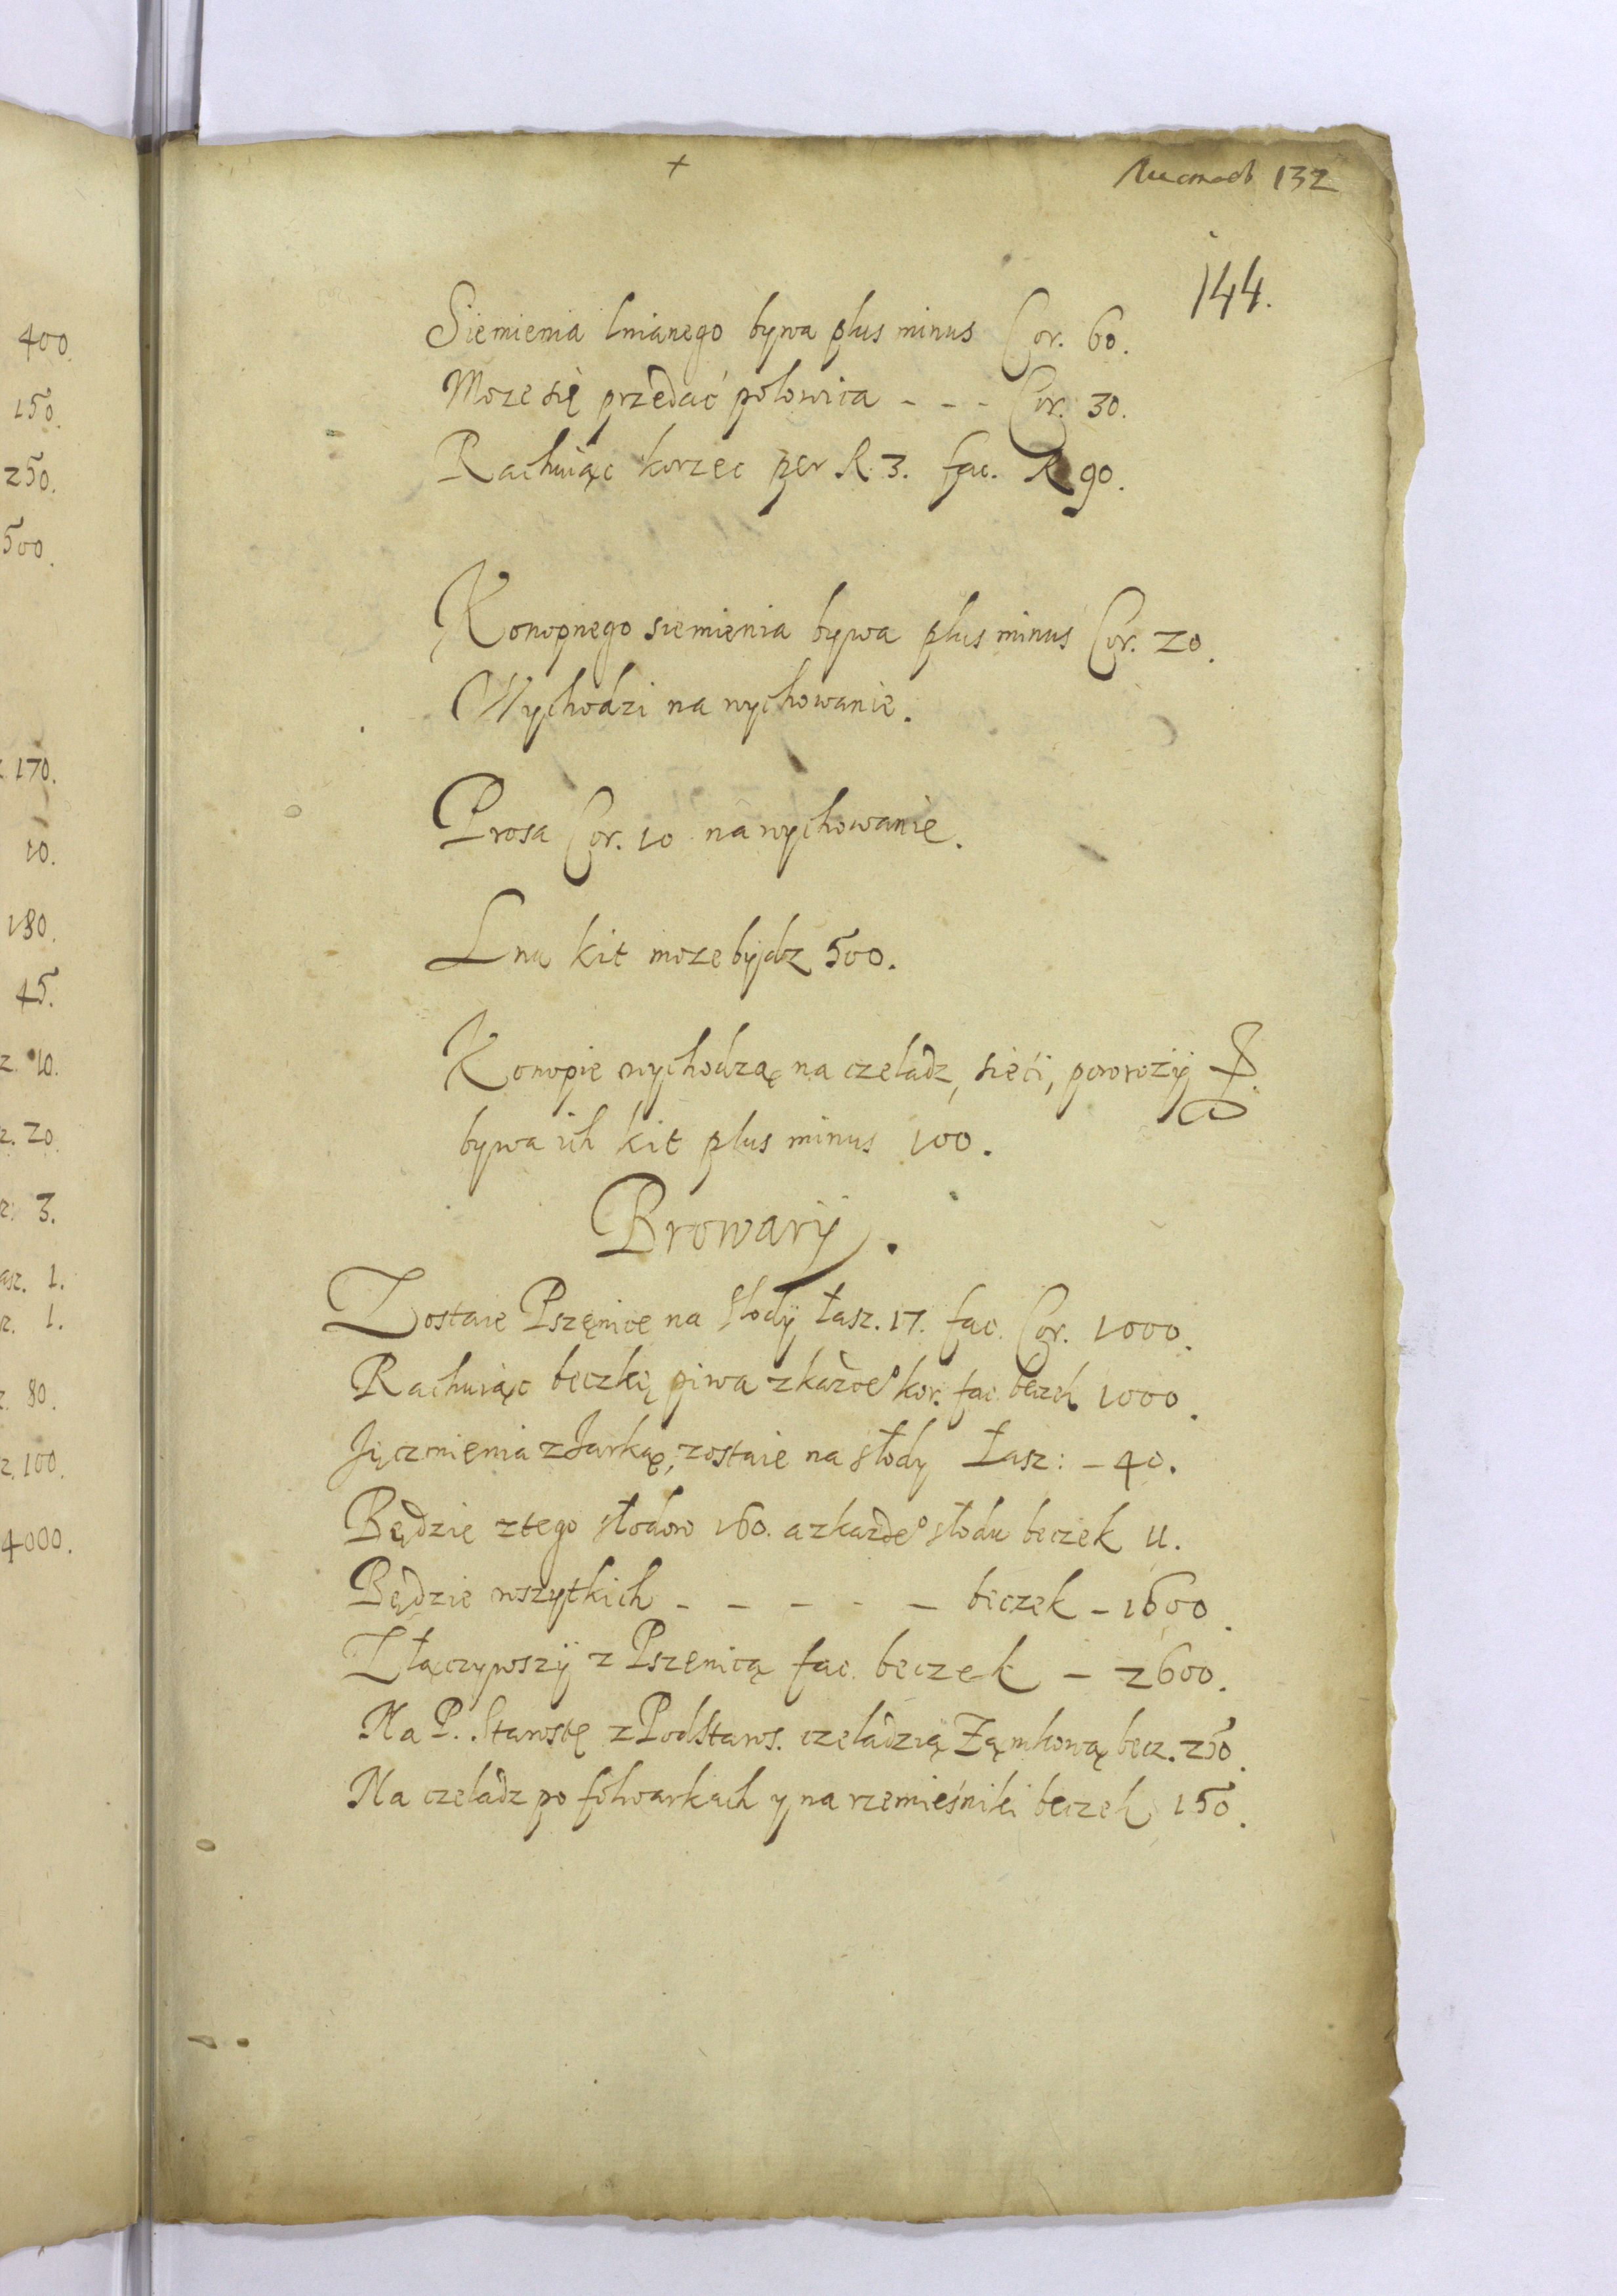 400.
150.
250.
500.
170.
10.
180.
45.
z. 10.
z. 20
z. 3.
asz. 1.
z. 1.
z. 80.
z. 100.
4000.
+
Листов 132
144.
Siemienia lnianego bywa plus minus Cor. 60.
Może się przedać połowica - - - Cor. 30.
Rachuiąc korzec per R. 3. fac. R 90.
Konopnego siemienia bywa plus minus Cor. 20.
Wychodzi na wychowanie.
Prosa Cor. 10 na wychowanie.
Lnu kit może bydz 500.
Konopie wychodzą na czeladz, sieći, powrozy
bywa ich kit plus minus 100.
Browary.
Zostaie Pszenice na słody łasz. 17. fac. Cor. 1000.
Rachuiąc beczkę piwa z każde° kor. fac. beczek 1000.
Jęczmienia z Jarką, zostaie na słody Łasz: - 40.
Będzie z tego słodow 160. a z każde° słodu beczek 11.
Będzie wszytkich - - - - - beczek - 1600.
Złączywszy z Pszenicą fac. beczek - 2600.
Na P. Starostę z Podstaros. czeladzią Zamkową becz. 250.
Na czeladz po folwarkach y na rzemieśniki beczek 150.